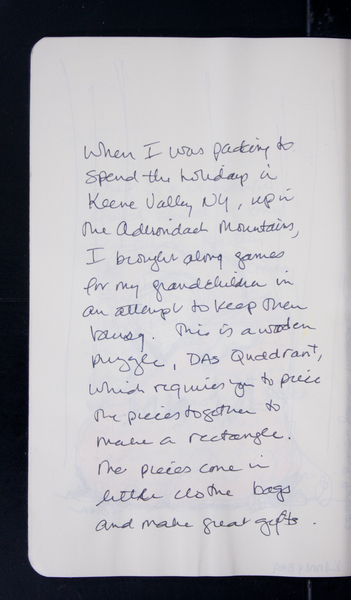 When I was packing to
spend the holidays in
Keene Valley NY, up in
the Adirondack Mountains,
I brought along games
for my grandchildren in
an attempt to keep them
busy. This is a wooden
puzzle, DAS Quadrant,
which requires you to piece
the pieces together to
make a rectangle.
The pieces come in
little clothe bags
and make great gifts.